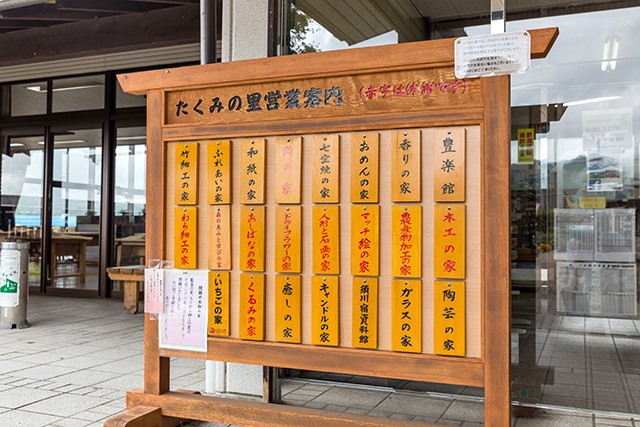 たくみの里営業案内
(赤字は休館です)
豊楽館
香りの家
おめんの家
七宝焼の家
の家
和紙の家
ふれあいの家
竹細工の家
木工の家
農産物加工の家
マッチ絵の家
人形と石画の家
ドライフラワーの家
おしばなの家
森の恵みと学びの家
わら細工の家
陶芸の家
ガラスの家
須川宿資料館
キャンドルの家
癒しの家
くるみの家
いちごの家